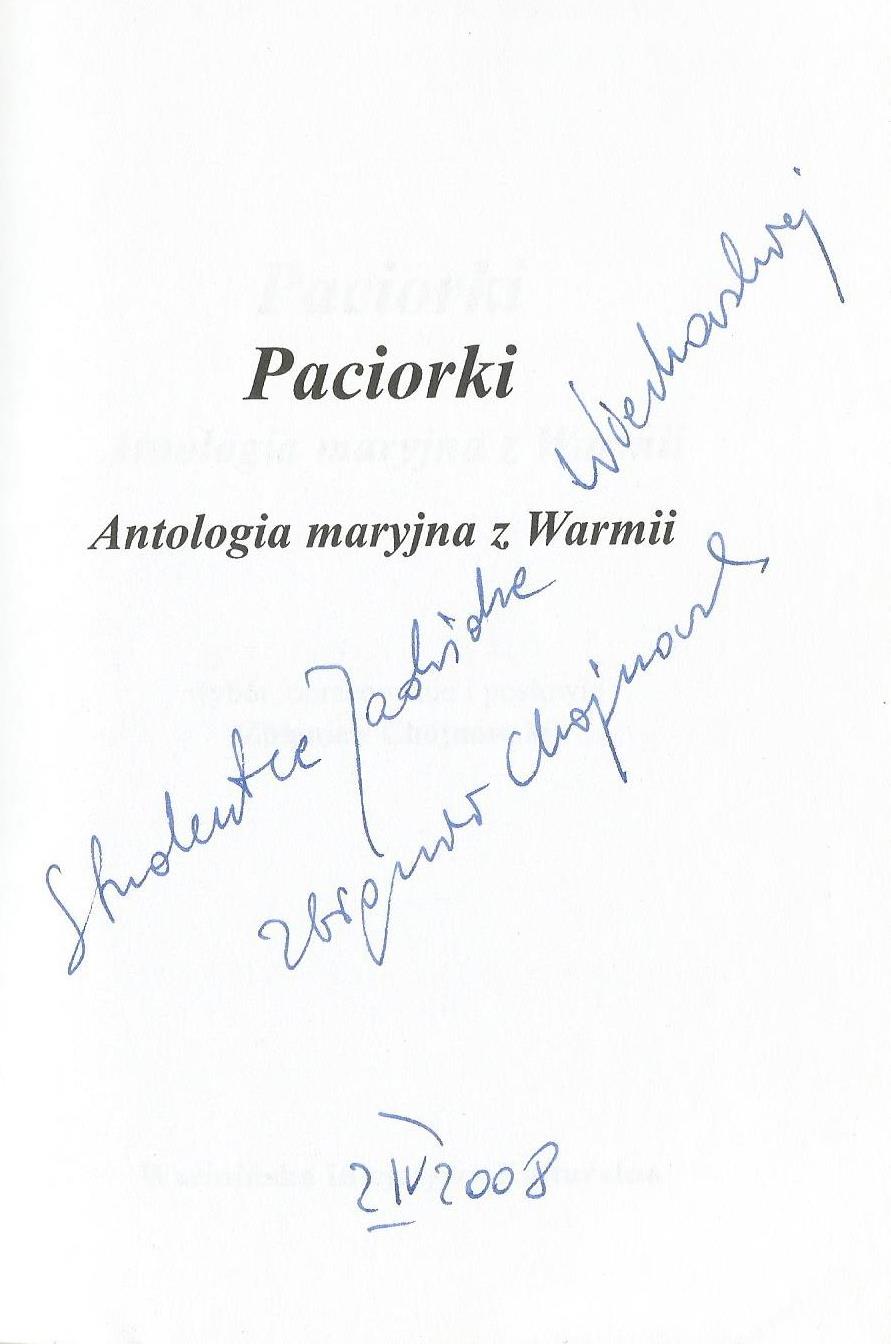 Paciorki
Antologia maryjna z Warmii
Studentce Jadwidze
Zbigniew Chojnowski
2 IV 2008